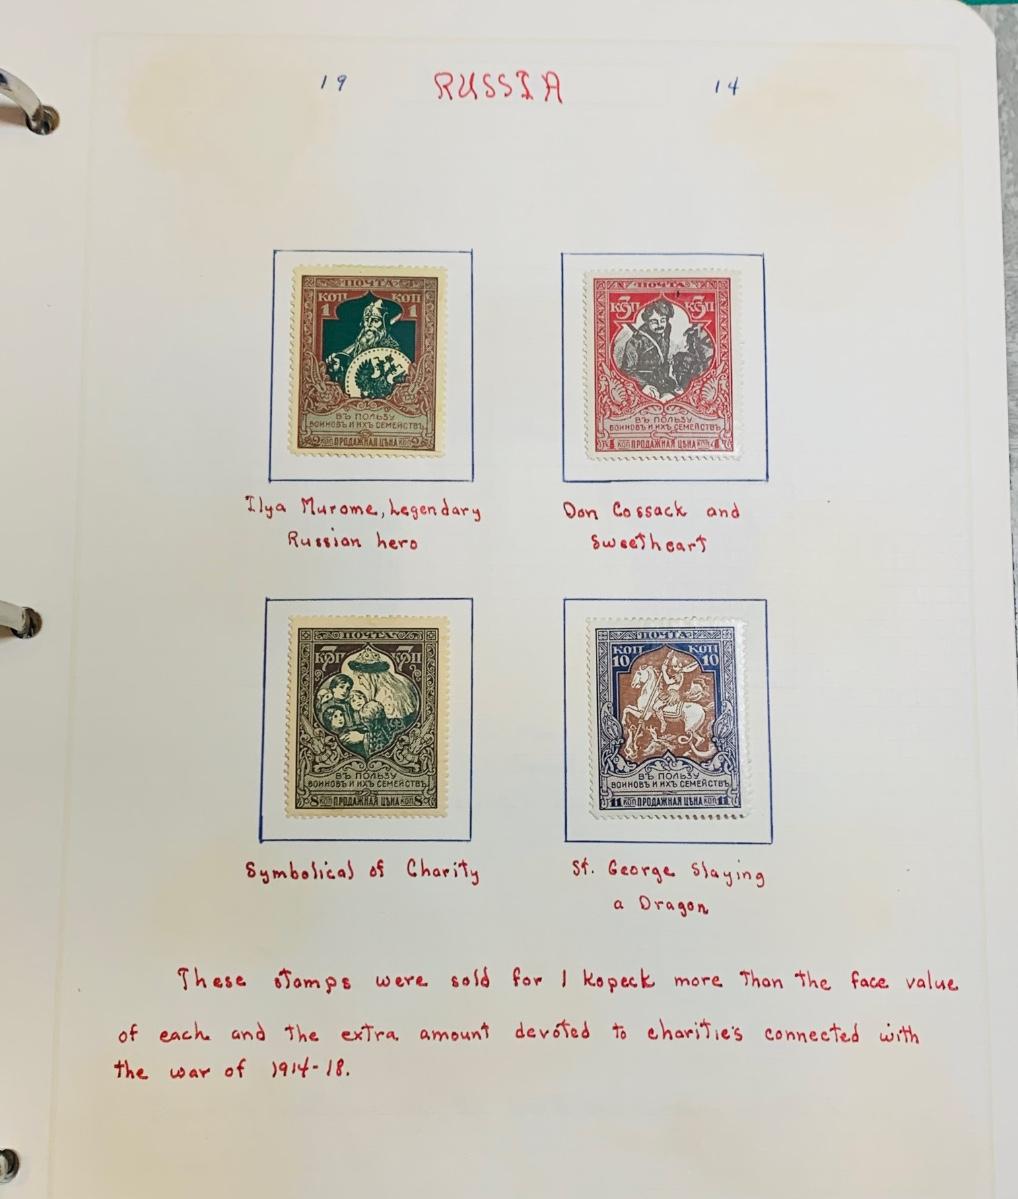 19 RUSSIA 14
ПОЧТА
КОП 1 КОП 1
ВЪ ПОЛЬЗУ
ВОИНОВЪ И ИХЪ СЕМЕЙСТВЪ
2 КОП ПРОДАЖНАЯ ЦѢНА КОП 2
ПОЧТА
КОП 3 КОП 3
ВЪ ПОЛЬЗУ
ВОИНОВЪ И ИХЪ СЕМЕЙСТВЪ
4 КОП ПРОДАЖНАЯ ЦѢНА КОП 4
Ilya Murome, Legendary
Russian hero
Don Cossack and
Sweetheart
ПОЧТА
7 КОП 7 КОП
ВЪ ПОЛЬЗУ
ВОИНОВЪ И ИХЪ СЕМЕЙСТВЪ
8 КОП ПРОДАЖНАЯ ЦѢНА КОП 8
ПОЧТА
КОП 10 КОП 10
ВЪ ПОЛЬЗУ
ВОИНОВЪ И ИХЪ СЕМЕЙСТВЪ
11 КОП ПРОДАЖНАЯ ЦѢНА КОП 11
Symbolical of Charity
St. George Slaying
a Dragon
These stamps were sold for 1 kopeck more than the face value
of each and the extra amount devoted to charitie's connected with
the war of 1914-18.